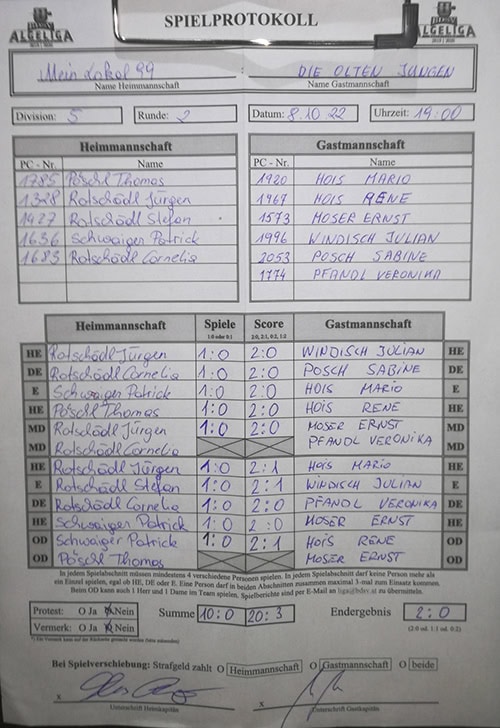 SPIELPROTOKOLL
ALGELIGA ALGELIGA
Mein Lokal 99 : DIE OLTEN JUNGEN
Name Heimmannschaft Name Gastmannschaft
Division: 5 Runde: 2 Datum: 8.10.22 Uhrzeit: 19:00
Heimmannschaft Gastmannschaft
PC - Nr. Name PC - Nr. Name
1785 Pöschl Thomas 1920 HOIS MARIO
1328 Rotschödl Jürgen 1967 HOIS RENE
1427 Rotschödl Stefan 1573 MOSER ERNST
1636 Schwaiger Patrick 1996 WINDISCH JULIAN
1683 Rotschödl Cornelia 2053 POSCH SABINE
1774 PFANDL VERONIKA
Heimmannschaft Spiele Score Gastmannschaft
1:0 oder 0:1 2:0, 2:1, 0:2, 1:2
HE Rotschödl Jürgen 1:0 2:0 WINDISCH JULIAN HE
DE Rotschödl Cornelia 1:0 2:0 POSCH SABINE DE
E Schwaiger Patrick 1:0 2:0 HOIS MARIO E
HE Pöschl Thomas 1:0 2:0 HOIS RENE HE
MD Rotschödl Jürgen 1:0 2:0 MOSER ERNST MD
MD Rotschödl Cornelia PFANDL VERONIKA MD
HE Rotschödl Jürgen 1:0 2:1 HOIS MARIO HE
E Rotschödl Stefan 1:0 2:1 WINDISCH JULIAN E
DE Rotschödl Cornelia 1:0 2:0 PFANDL VERONIKA DE
HE Schwaiger Patrick 1:0 2:0 MOSER ERNST HE
OD Schwaiger Patrick 1:0 2:1 HOIS RENE OD
OD Pöschl Thomas MOSER ERNST OD
In jedem Spielabschnitt müssen mindestens 4 verschiedene Personen spielen. In jedem Spielabschnitt darf keine Person mehr als
ein Einzel spielen, egal ob HE, DE oder E. Eine Person darf in beiden Abschnitten zusammen maximal 3-mal zum Einsatz kommen.
Beim OD kann auch 1 Herr und 1 Dame im Team spielen. Spielberichte sind per E-Mail an liga@bdsv.at zu übermitteln.
Protest: O Ja O Nein Summe 10:0 20:3 Endergebnis 2:0
Vermerk: O Ja O Nein (2:0 od. 1:1 od. 0:2)
Bei Spielverschiebung: Strafgeld zahlt O Heimmannschaft O Gastmannschaft O beide
x x
Unterschrift Heimkapitän Unterschrift Gastkapitän